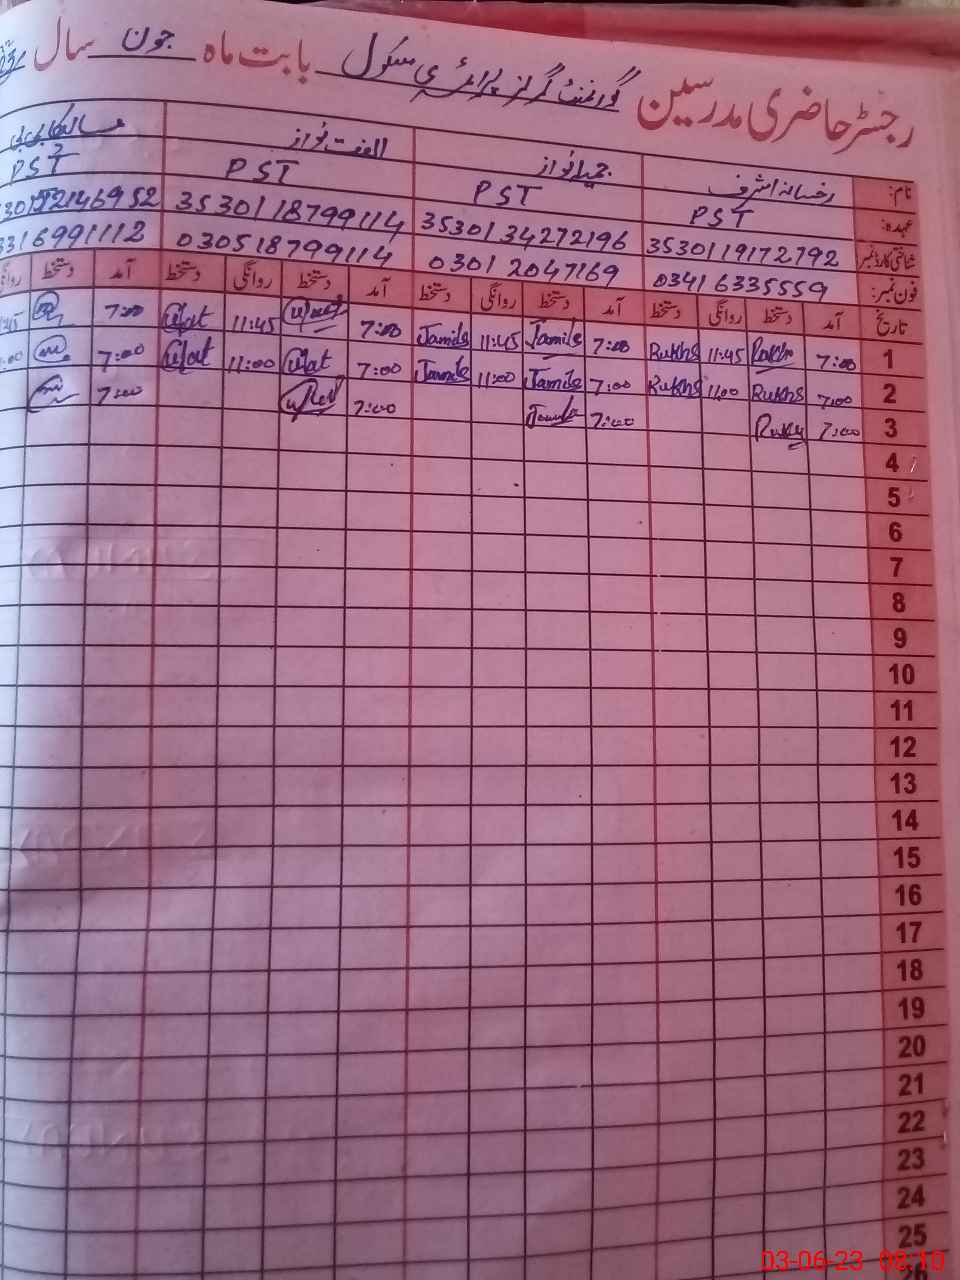 رجسٹر حاضری مدرسین گورنمنٹ گرلز پرائمری سکول بابت ماہ جون سال
نام: رخسانہ اشرف جمیلہ نواز الفت نواز
عہدہ: PST PST PST PST
شناختی کارڈ نمبر 3530119172792 3530134272196 3530118799114
فون نمبر: 03416335559 03012047169 03051879 9114
تاریخ آمد دستخط روانگی دستخط آمد دستخط روانگی دستخط آمد دستخط روانگی دستخط آمد دستخط
1 7:00 Rukhs 11:45 Rukhs 7:00 Jamila 11:45 Jamila 7:00 Ulfat 11:45 Ulfat 7:00
2 7:00 Rukhs 11:00 Rukhs 7:00 Jamila 11:00 Jamila 7:00 Ulfat 11:00 Ulfat 7:00
3 7:00 Rukhs 7:00 Jamila 7:00 Ulfat 7:00
4
5
6
7
8
9
10
11
12
13
14
15
16
17
18
19
20
21
22
23
24
25
03-06-23 08:10